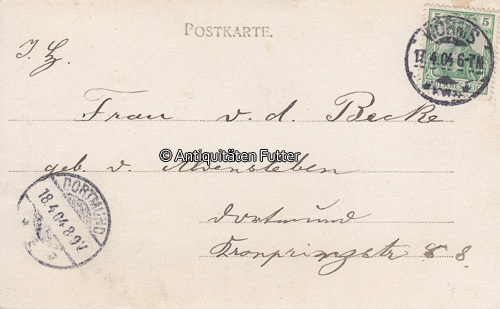 POSTKARTE.
WORMS
5
17.4.04 6-7N.
Frau v. d. Becke
© Antiquitäten Futter
geb. v. Alvensleben
DORTMUND
18.4.04 8-9V.
Dortmund
Kronprinzstr 88.